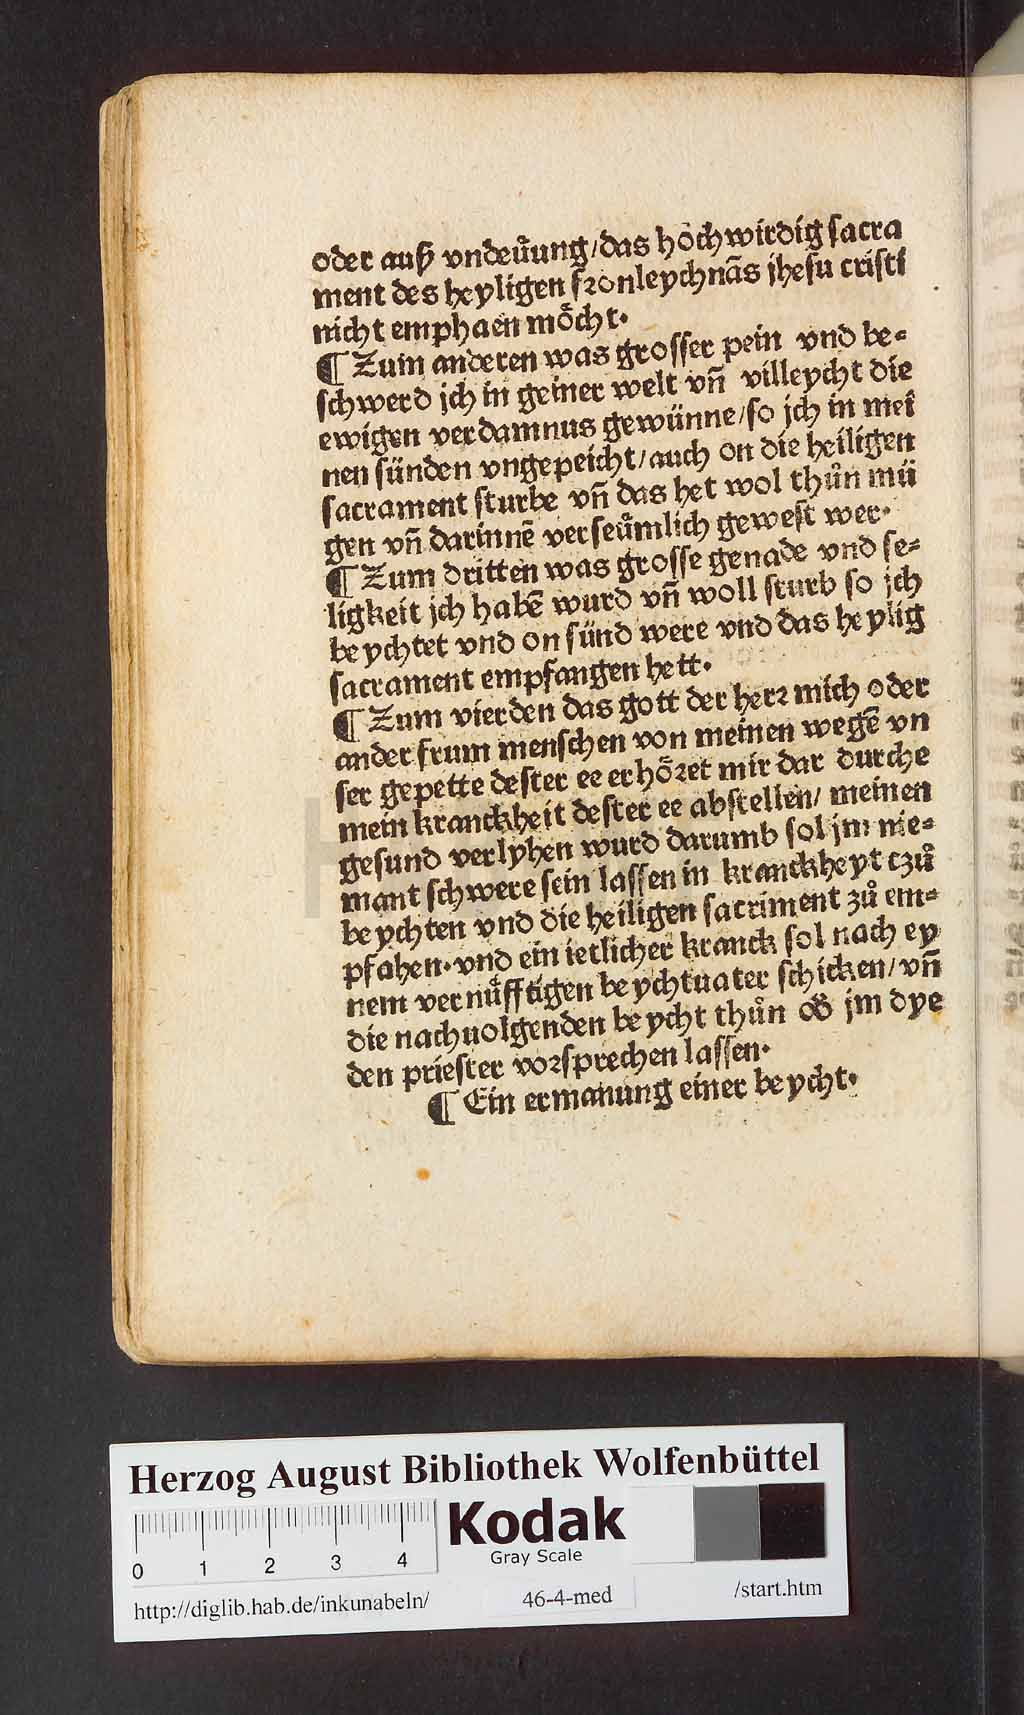 oder auß vndeuͤung/das hochwirdig sacra
ment des heyligen fronleychnãs jhesu cristi
nicht emphaen moͤcht.
¶ Zum anderen was grosser pein vnd be⸗
schwerd jch in geiner welt vñ villeycht die
ewigen verdamnus gewünne/so jch in mei
nen sünden vngepeicht/auch on die heiligen
sacrament sturbe vñ das het wol thůn mü
gen vñ darinnẽ verseuͤmlich gewest wer.
¶ Zum dritten was grosse genade vnd se⸗
ligkeit jch habẽ wurd vñ woll sturb so jch
beychtet vnd on sünd were vnd das heylig
sacrament empfangen hett.
¶ Zum vierden das gott der herr mich oder
ander frum menschen von meinen wegẽ vn
ser gepette dester ee erhoͤret mir dar durche
mein kranckheit dester ee abstellen/ meinen
gesund verlyhen wurd darumb sol jm nie⸗
mant schwere sein lassen in kranckheyt czů
beychten vnd die heiligen sacriment zů em⸗
pfahen.vnd ein ietlicher kranck sol nach ey
nem vernuͤfftigen beychtuater schicken/vñ
die nachuolgenden beycht thůn oð jm dye
den priester vorsprechen lassen.
¶ Ein ermanung einer beycht.
Herzog August Bibliothek Wolfenbüttel
0 1 2 3 4
Kodak
Gray Scale
http://diglib.hab.de/inkunabeln/ 46-4-med /start.htm